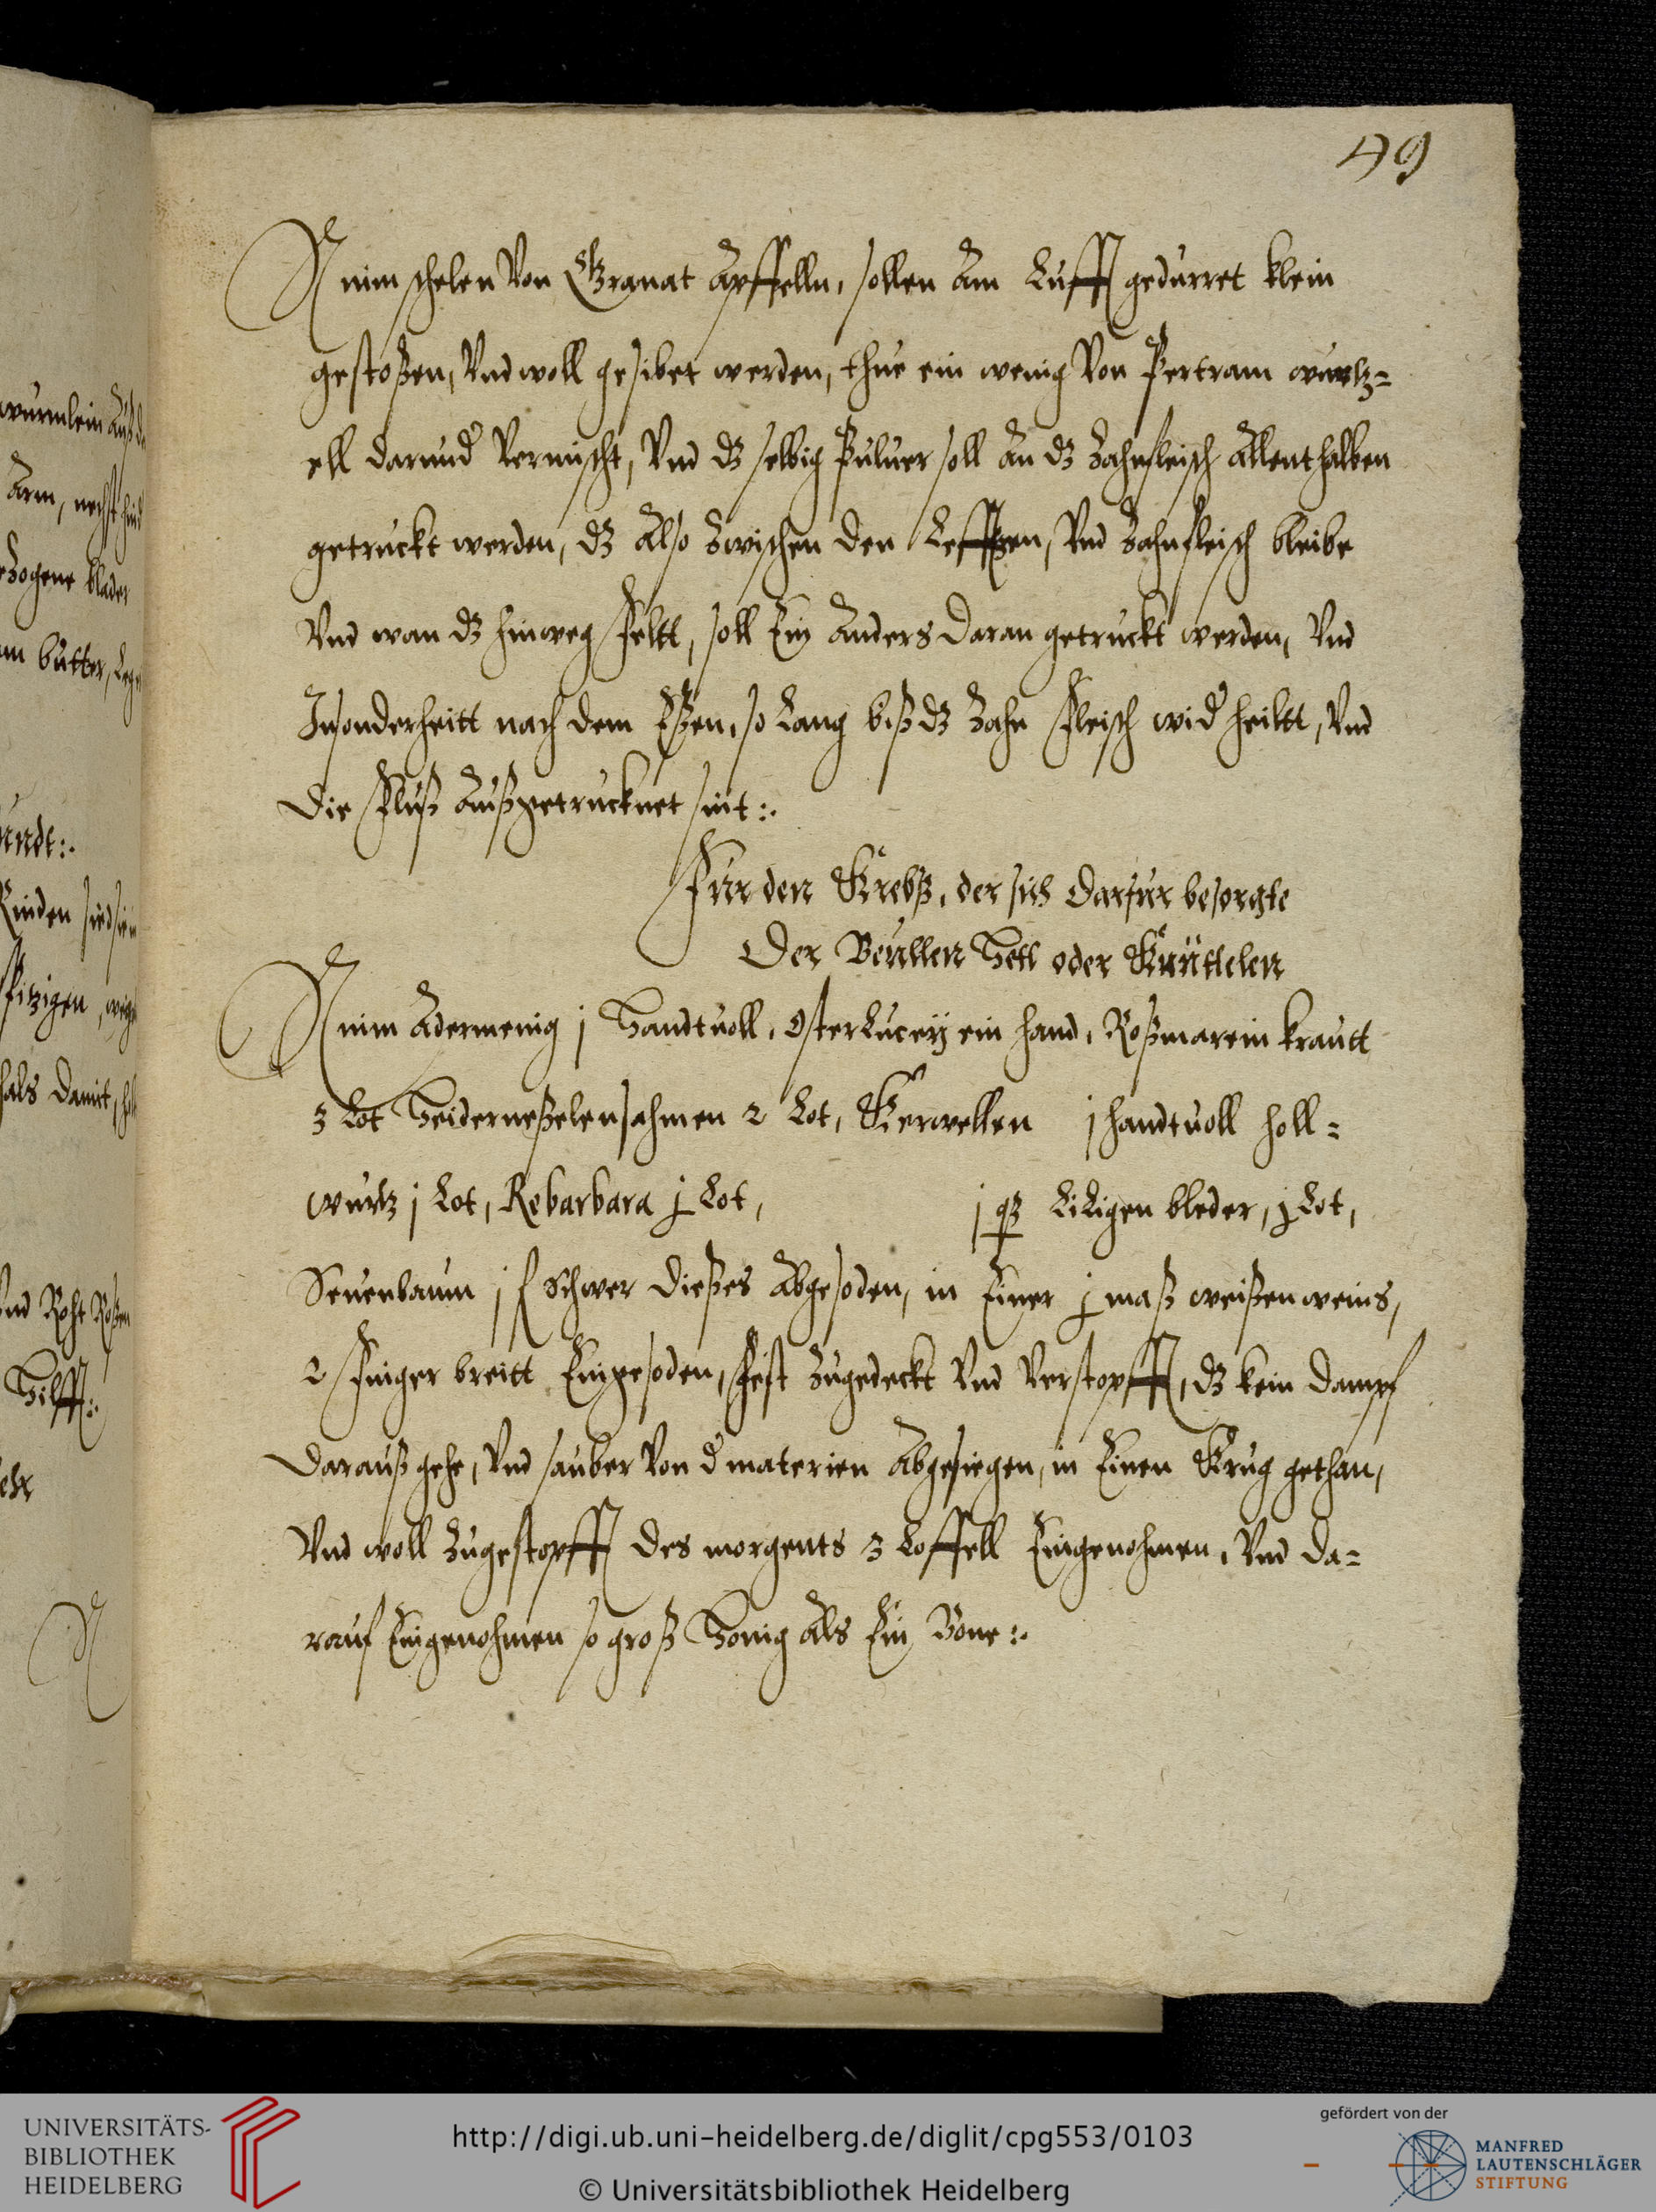 49
Nnim schelen Von Granat Apffelln, sollen Am Lufft gedurret klein
gestoßen, Vnd woll gesibet werden, thue ein wenig Von Pertram wurtz=
ell darund Vermischt, Vnd dz selbig Puluer soll An dz Zahnfleisch Allenthalben
getruckt werden, dz Also Zwischen den Lefftzen, Vnd Zahnfleisch bleibe
Vnd wan dz hinweg felltt, soll Ein Anders daran getruckt werden, Vnd
Insonderheitt nach dem Eßen, so Lang biß dz Zahn fleisch wid heiltt, Vnd
die fluß Außgetrucknet sint :.
Fur den Krebß, der sich darfur besorgte
Der Beullen Hett oder Knüttelen
Nnim Adermenig j Handtuoll, Osterlucey ein hand, Roßmarein krautt
3 Lot Heiderneßelensahmen 2 Lot, Kerwellen j handtuoll holl=
wurtz j Lot, Rebarbara j Lot, j qz Liligen bleder, j Lot,
Seuenbaum j f schwer dießes Abgesoden, in Einer j maß weißen weins,
2 finger breitt Eingesoden, fest Zugedeckt Vnd Verstopfft, dz kein dampf
darauß gehe, Vnd sauber Von d materien Abgesiegen, in Einen Krug gethan,
Vnd woll Zugestopfft des morgents 3 Loffell Eingenohmen, Vnd da=
rauf Eingenohmen so groß Honig Als Ein Bone :.
wurmlein Auß
Arm, nechst
Zogene blader
butter,
Rinden
hitzigen,
hals damit,
Vnd Roht Roßen
Hilfft :.
UNIVERSITÄTS-
BIBLIOTHEK
HEIDELBERG
http://digi.ub.uni-heidelberg.de/diglit/cpg553/0103
© Universitätsbibliothek Heidelberg
gefördert von der
MANFRED
LAUTENSCHLÄGER
STIFTUNG